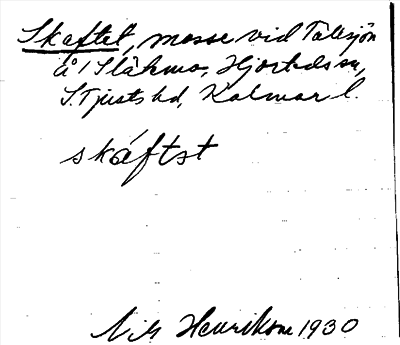 Skaftet, mosse vid Tålsjön
å 1 Slåhmo, Hjorteds sn,
S. Tjusts hd, Kalmar l.
skáftət
Nils Henrikson 1930